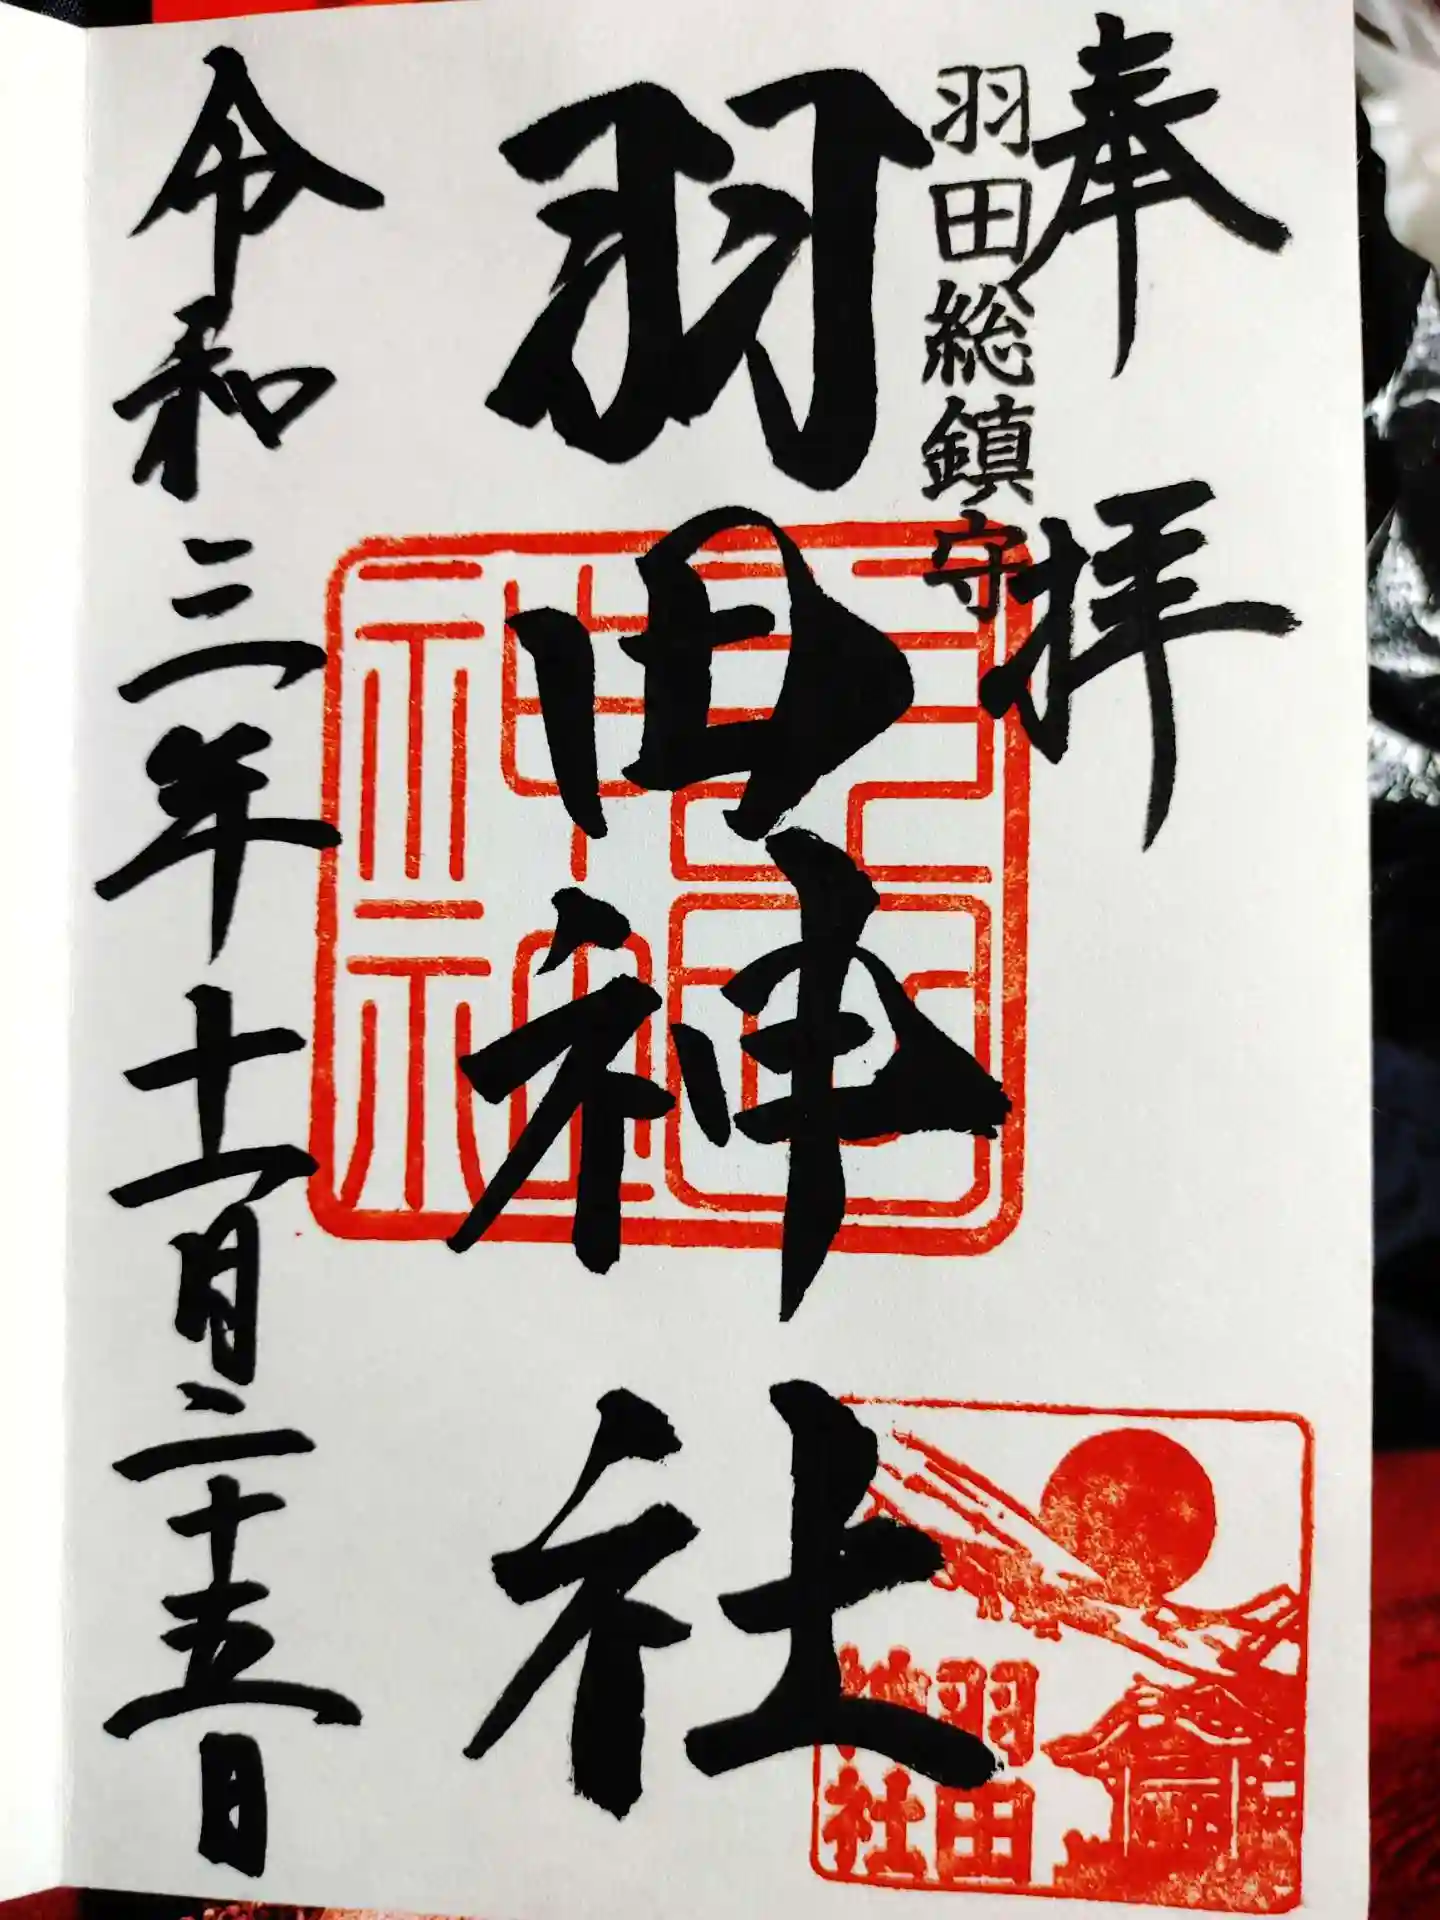 奉拝
羽田総鎮守
羽田神社
令和三年十一月二十五日
羽田
神社
羽田
神社